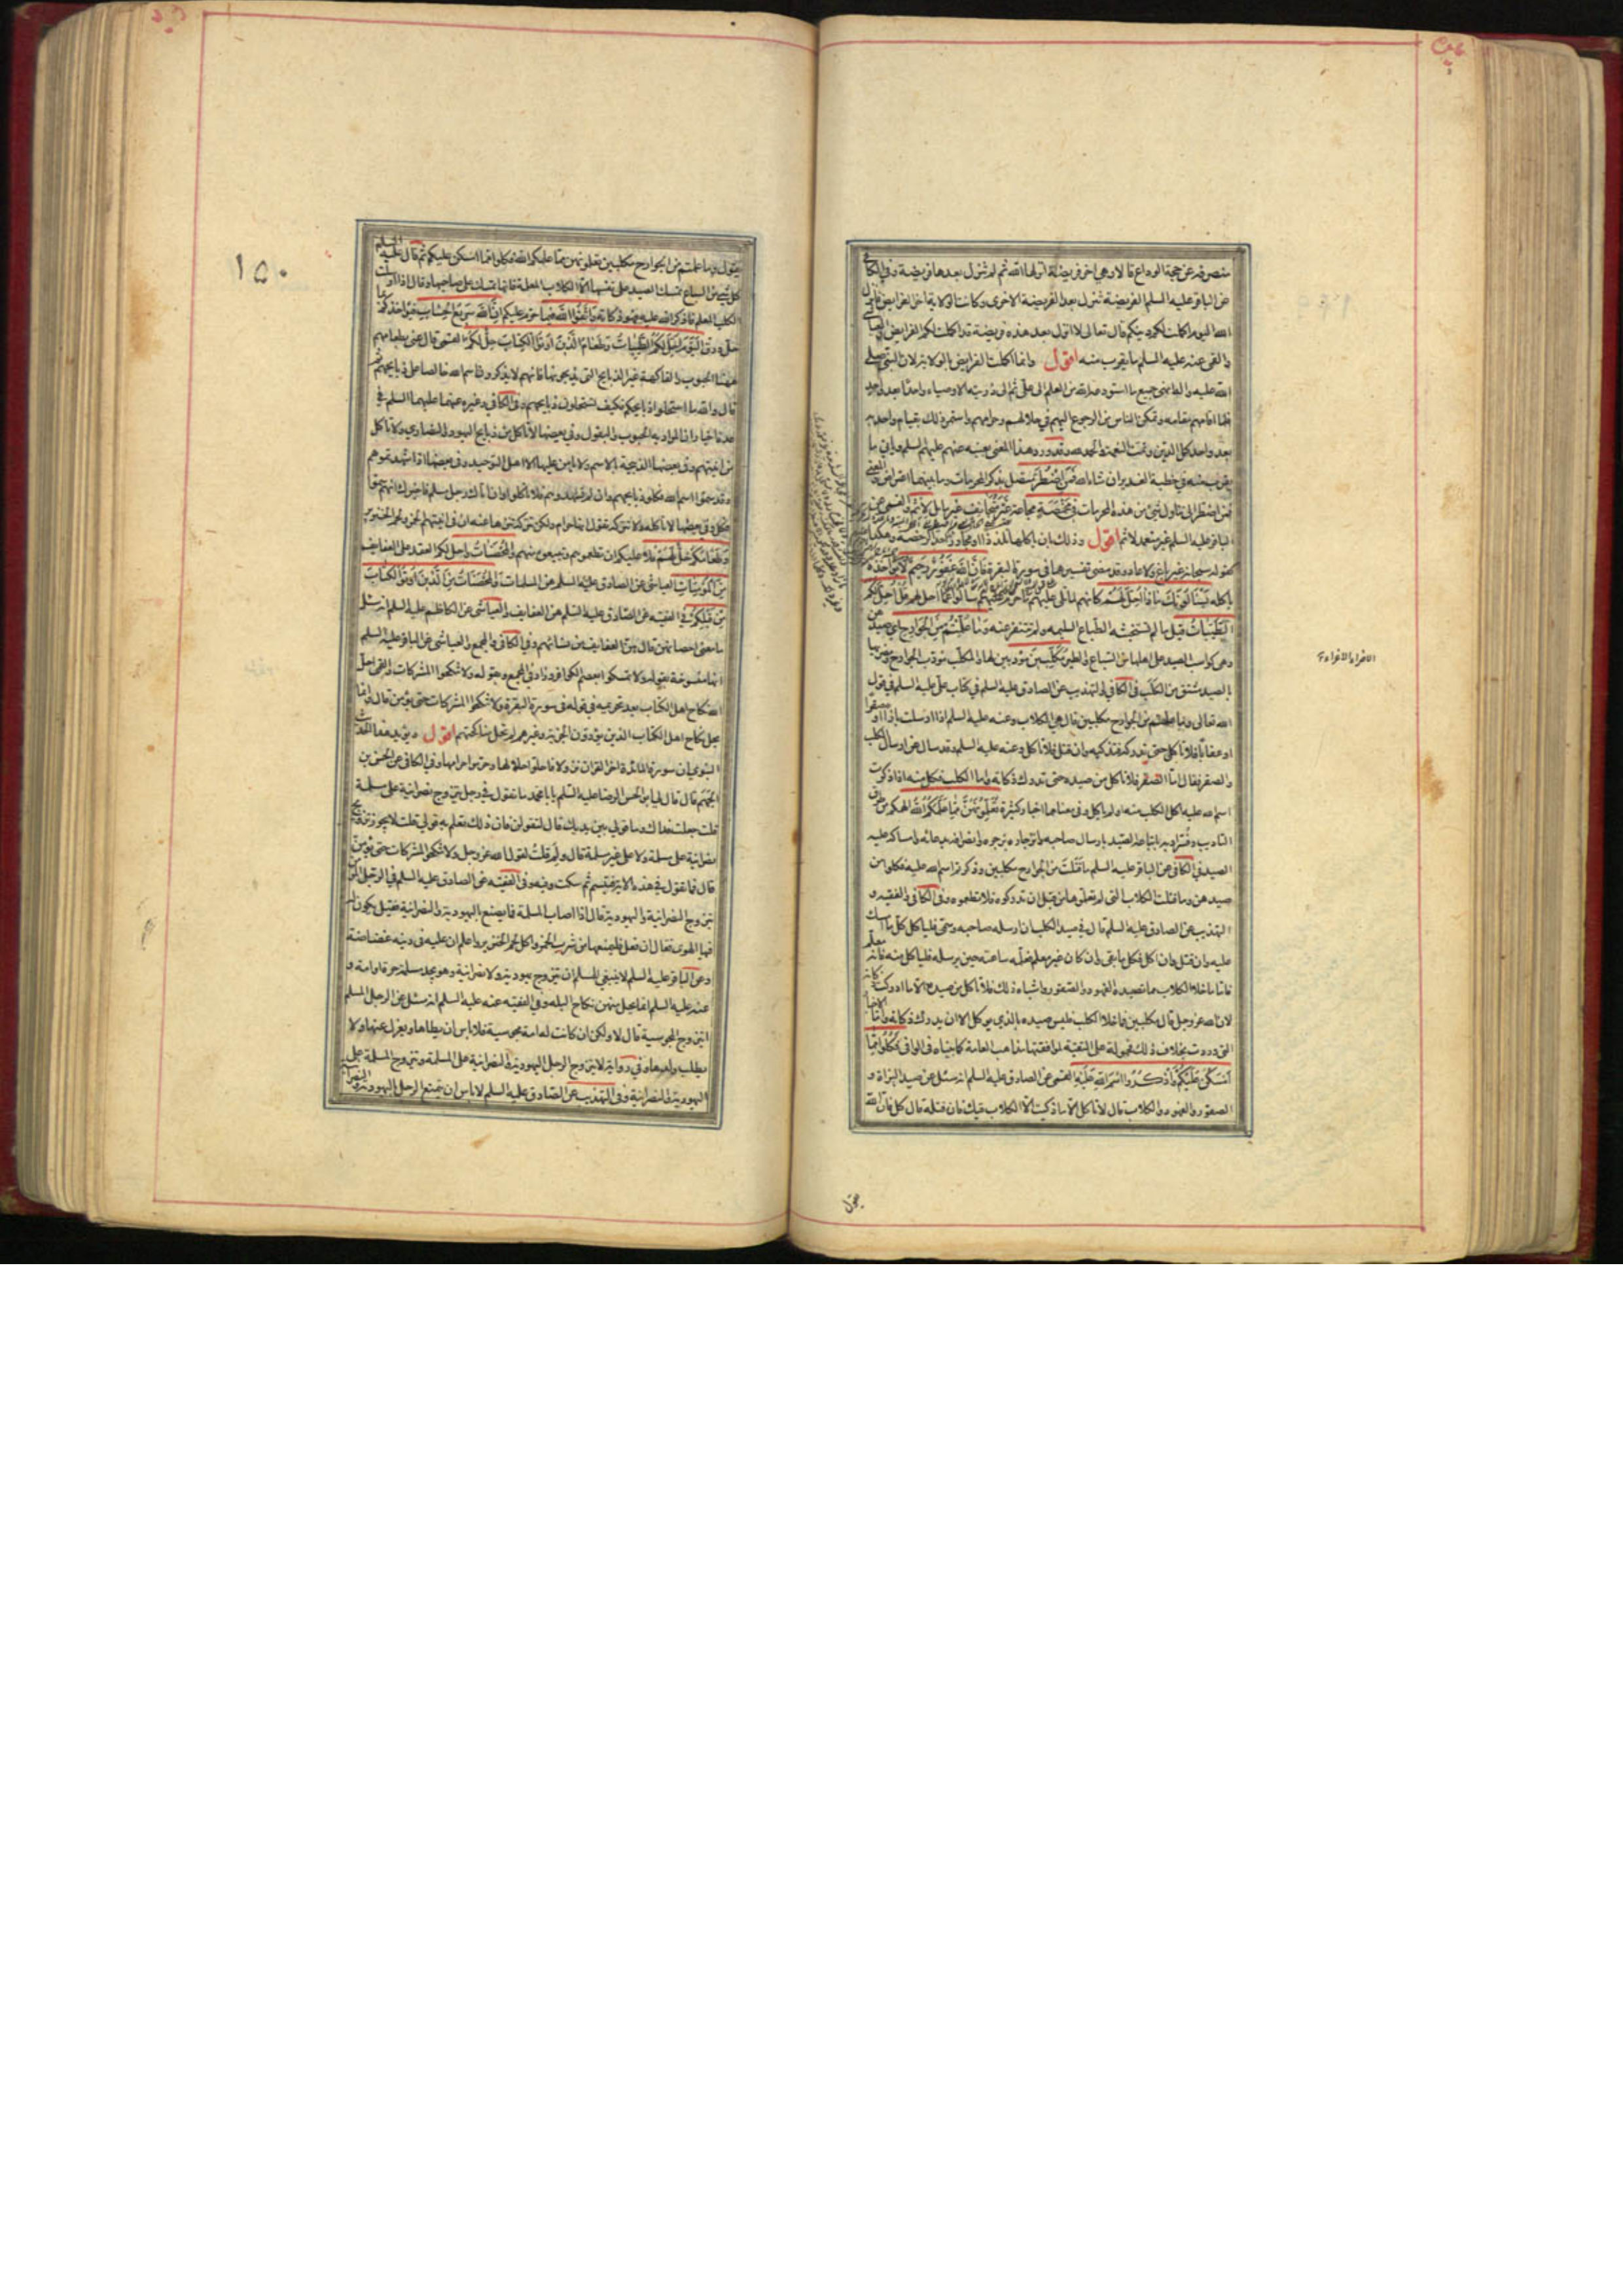 منصرفه عن حجة الوداع قالا وهي اخر فريضة انزلها الله ثم لم تنزل بعدها فريضة وفي الكافي
عن الباقر عليه السلم الفريضة تنزل بعد الفريضة الاخرى وكانت الولاية اخر الفرايض فانزل
الله اليوم اكملت لكم دينكم قال تعالى لا انزل بعد هذه فريضة قد اكملت لكم الفرايض
والقمي عنه عليه السلم ما يقرب منه اقول وانما اكملت الفرايض بالولاية لان النبي صلى
الله عليه واله انهى جميع ما استودعه الله من العلم الى علي ثم الى ذريته الاوصياء واحدا بعد واحد
فلما اقامهم مقامه وتمكن الناس من الرجوع اليهم في حلالهم وحرامهم واستمر ذلك بقيام واحد به
بعد واحد كمل الدين وتمت النعمة والحمد لله وقد ورد هذا المعنى بعينه عنهم عليهم السلم وياتي ما
يقرب منه في خطبة الغدير ان شاء الله فمن اضطر متصل بذكر المحرمات وما بينهما اعتراض والمعنى
فمن اضطر الى تناول شيء من هذه المحرمات في مخمصة مجاعة غير متجانف غير مايل لاثم والقمي عن
الباقر عليه السلم غير متعمد لاثم اقول وذلك بان ياكلها تلذذا او مجاوزا حد الرخصة وهذا
كقوله سبحانه غير باغ ولا عاد وقد مضى تفسيرهما في سورة البقرة فان الله غفور رحيم لا يؤاخذه
باكله يسئلونك ماذا احل لهم كانهم لما تلي عليهم ما حرم عليهم سالوا عما احل لهم قل احل لكم
الطيبات قيل ما لم تستخبثه الطباع السليمة ولم تتنفر عنه وما علمتم من الجوارح اي صيدهن
وهي كواسب الصيد على اهلها من السباع والطير مكلبين مؤدبين لها والمكلب مؤدب الجوارح ومغريها
بالصيد مشتق من الكلب في الكافي والتهذيب عن الصادق عليه السلم في كتاب علي عليه السلم في قول
الله تعالى وما علمتم من الجوارح مكلبين قال هي الكلاب وعنه عليه السلم اذا ارسلت بازا او صقرا
او عقابا فلا تاكل حتى تدركه فتذكيه وان قتل فلا تاكل وعنه عليه السلم وقد سال عن ارسال الكلب
والصقر فقال اما الصقر فلا تاكل من صيده حتى تدرك ذكاته واما الكلب فكل منه اذا ذكرت
اسم الله عليه اكل الكلب منه او لم ياكل وفي معناهما اخبار كثيرة تعلمونهن مما علمكم الله الهمكم من طرق
التاديب وفسر ادبه باتباعه الصيد بارسال صاحبه وانزجاره بزجره وانصرافه بدعائه وامساكه عليه
الصيد في الكافي عن الباقر عليه السلم ما قتلت من الجوارح مكلبين وذكر اسم الله عليه فكلوا من
صيدهن وما قتلت الكلاب التي لم تعلموها من قبل ان تدركوه فلا تطعموه وفي الكافي والفقيه و
التهذيب عن الصادق عليه السلم قال في صيد الكلب ان ارسله صاحبه وسمى فلياكل كل ما امسك
عليه وان قتل وان اكل فكل ما بقي وان كان غير معلم فعلمه ساعته حين يرسله فلياكل منه فانه معلم
فاما ما خلا الكلاب مما تصيده الفهود والصقور واشباه ذلك فلا تاكل من صيده الا ما ادركت ذكاته
لان الله عز وجل قال مكلبين فما خلا الكلب فليس صيده بالذي يؤكل الا ان يدرك ذكاته واما الاخبار
التي وردت بخلاف ذلك فمحمولة على التقية لموافقتها مذاهب العامة كما بيناه في الوافي فكلوا مما
امسكن عليكم واذكروا اسم الله عليه القمي عن الصادق عليه السلم انه سئل عن صيد البزاة و
الصقور والفهود والكلاب قال لا تاكل الا ما ذكيت الا الكلاب قيل فان قتله قال كل فان الله
يقول
الافراء الاغراء
١٥٠
يقول وما علمتم من الجوارح مكلبين تعلمونهن مما علمكم الله فكلوا مما امسكن عليكم ثم قال عليه السلم
كل شيء من السباع تمسك الصيد على نفسها الا الكلاب المعلمة فانها تمسك على صاحبها وقال اذا ارسلت
الكلب المعلم فاذكر الله عليه فهو ذكاته واتقوا الله فيما حرم عليكم ان الله سريع الحساب فيؤاخذكم بما
جل ودق اليوم احل لكم الطيبات وطعام الذين اوتوا الكتاب حل لكم القمي قال عنى بطعامهم
ههنا الحبوب والفاكهة غير الذبايح التي يذبحونها فانهم لا يذكرون اسم الله خالصا على ذبايحهم ثم
قال والله ما استحلوا ذبايحكم فكيف تستحلون ذبايحهم وفي الكافي وغيره عنهما عليهما السلم في
عدة اخبار ان المراد به الحبوب والبقول وفي بعضها لا تاكل من ذبايح اليهود والنصارى ولا تاكل
من انيتهم وفي بعضها الذبيحة بالاسم ولا يامن عليها الا اهل التوحيد وفي بعضها اذا شهدتموهم
وقد سموا اسم الله فكلوا ذبايحهم وان لم تشهدوهم فلا تاكلوا وان اتاك رجل مسلم فاخبرك انهم سموا
فكل وفي بعضها لا تاكله ولا تتركه تقول انه حرام ولكن تتركه تنزها عنه ان في انيتهم الخمر ولحم الخنزير
وطعامكم حل لهم فلا عليكم ان تطعموهم وتبيعوه منهم والمحصنات واحل لكم العقد على العفايف
من المؤمنات العياشي عن الصادق عليه السلم هن المسلمات والمحصنات من الذين اوتوا الكتاب
من قبلكم في الفقيه عن الصادق عليه السلم هن العفايف والعياشي عن الكاظم عليه السلم انه سئل
ما معنى احصانهن قال هن العفايف من نسائهم وفي الكافي والمجمع والعياشي عن الباقر عليه السلم
انها منسوخة بقوله ولا تمسكوا بعصم الكوافر وزاد في المجمع وبقوله ولا تنكحوا المشركات والقمي احل
الله نكاح اهل الكتاب بعد تحريمه في قوله في سورة البقرة ولا تنكحوا المشركات حتى يؤمن قال وانما
يحل نكاح اهل الكتاب الذين يؤدون الجزية وغيرهم لم تحل مناكحتهم اقول ويؤيد هذا الحديث
النبوي ان سورة المائدة اخر القران نزولا فاحلوا حلالها وحرموا حرامها وفي الكافي عن الحسن بن
الجهم قال قال لي ابو الحسن الرضا عليه السلم يا با محمد ما تقول في رجل يتزوج نصرانية على مسلمة
قلت جعلت فداك وما قولي بين يديك قال لتقولن فان ذلك تعلم به قولي قلت لا يجوز تزويج
نصرانية على مسلمة ولا على غير مسلمة قال ولم قلت لقول الله عز وجل ولا تنكحوا المشركات حتى يؤمن
قال فما تقول في هذه الاية فتبسم ثم سكت وفيه وفي الفقيه عن الصادق عليه السلم في الرجل المؤمن
يتزوج النصرانية واليهودية قال اذا اصاب المسلمة فما يصنع باليهودية والنصرانية فقيل يكون له
فيها الهوى فقال ان فعل فليمنعها من شرب الخمر واكل لحم الخنزير واعلم ان عليه في دينه غضاضة
وعن الباقر عليه السلم لا ينبغي للمسلم ان يتزوج يهودية ولا نصرانية وهو يجد مسلمة حرة او امة و
عنه عليه السلم انما يحل منهن نكاح البله وفي الفقيه عنه عليه السلم انه سئل عن الرجل المسلم
ايتزوج المجوسية قال لا ولكن ان كانت له امة مجوسية فلا باس ان يطاها ويعزل عنها ولا
يطلب ولدها وفي رواية لا يتزوج الرجل اليهودية والنصرانية على المسلمة ويتزوج المسلمة على
اليهودية والنصرانية وفي التهذيب عن الصادق عليه السلم لا باس ان يتمتع الرجل باليهودية والنصرانية